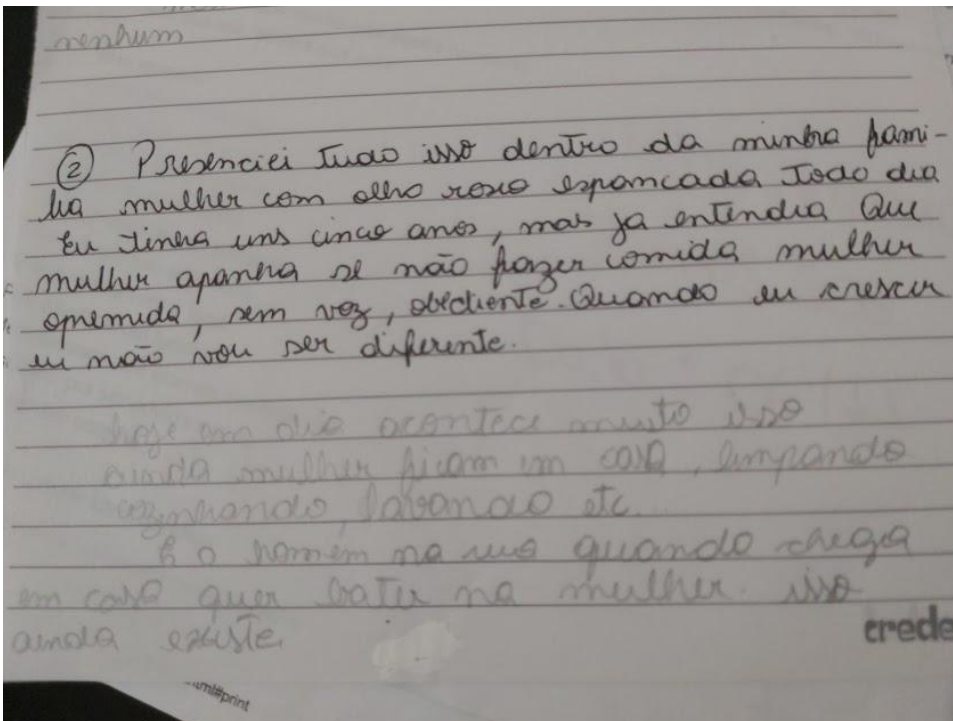 nenhum
② Presenciei Tudo isso dentro da minha fami-
lia mulher com olho roxo espancada Todo dia
Eu tinha uns cinco anos, mas ja entendia Que
mulher apanha se não fazer comida mulher
opremida, sem voz, obediente. Quando eu crescer
eu não vou ser diferente.
hoje em dia acontece muito isso
ainda mulher ficam em casa, limpando
cozinhando, lavando etc.
E o homem na rua quando chega
em casa quer bater na mulher. isso
ainda existe.
crede
uml#print